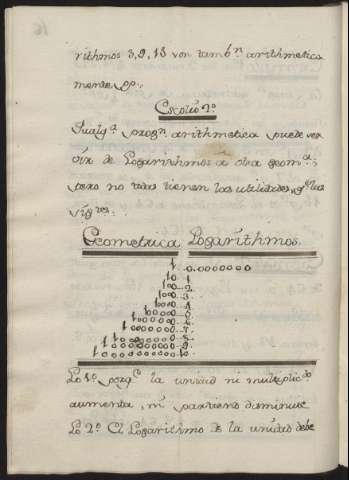 rithmos 3,9,15 son tamb.n arithmetica
mente pp.
Escolio 2.o
Qualq.a progr.n arithmetica puede ser
vir de Logarithmos à otra geom.ca;
pero no todas tienen las utilidades, q.e las
sig.tes:
Geometrica Logarithmos.
1 0.0000000
10 1
100 2
1000 3
10000 4
100000 5
1000000 6
10000000 7
100000000 8
1000000000 9
10000000000 10
Lo 1.o porq.e la unidad ni multiplic.do
aumenta, ni partiend disminuie
Lo 2.o El Logarithmo de la unidad debe